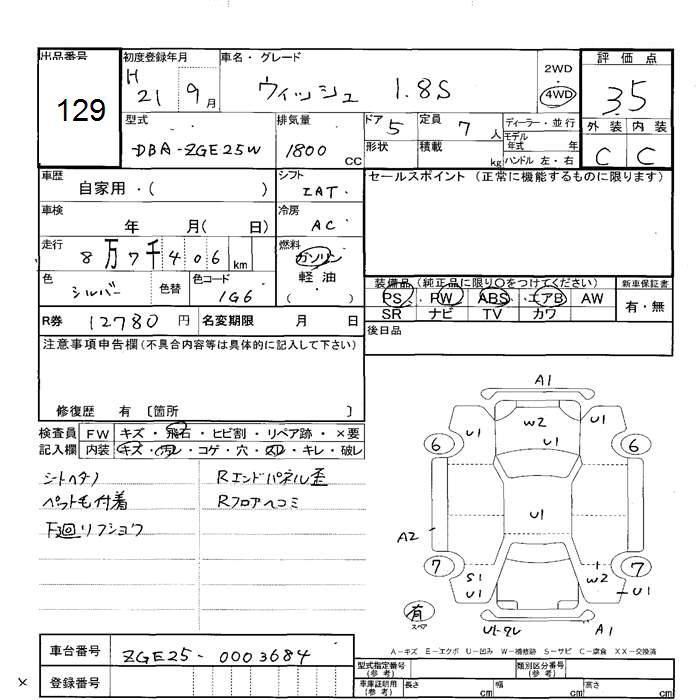 出品番号
129
初度登録年月
H 21 9月
車名・グレード
ウィッシュ 1.8S
2WD
4WD
評価点
3.5
外装 内装
C C
型式
DBA-ZGE25W
排気量
1800 CC
ドア 5
形状
定員 7 人
積載 kg
ディーラー・並行
モデル年式 年
ハンドル 左・右
車歴
自家用・( )
シフト
IAT
セールスポイント (正常に機能するものに限ります)
車検
年 月( 日)
冷房
AC
走行
8万7千406km
燃料
ガソリン
軽油
( )
色
シルバー
色替
色コード
1G6
装備品(純正品に限り〇をつけてください)
PS PW ABS エアB AW
SR ナビ TV カワ
新車保証書
有・無
R券 12780 円
名変期限 月 日
後日品
注意事項申告欄(不具合内容等は具体的に記入して下さい)
修復歴 有 〔箇所 〕
検査員 FW キズ・飛石・ヒビ割・リペア跡・×要
記入欄 内装 キズ・汚レ・コゲ・穴・スレ・キレ・破レ
シートヘタリ
ペット毛付着
下廻リフショク
Rエンドパネル歪
Rフロアヘコミ
A1
W2
U1
U1
U1
6
6
U1
A2
7
7
S1
U1
W2
U1
有
スペア
U1・ワレ
A1
A-キズ E-エクボ U-凹み W-補修跡 S-サビ C-腐食 XX-交換済
車台番号 ZGE25-0003684
登録番号
×
型式指定番号
(参考)
類別区分番号
(参考)
車庫証明用
(参考)
長さ cm 幅 cm 高さ cm